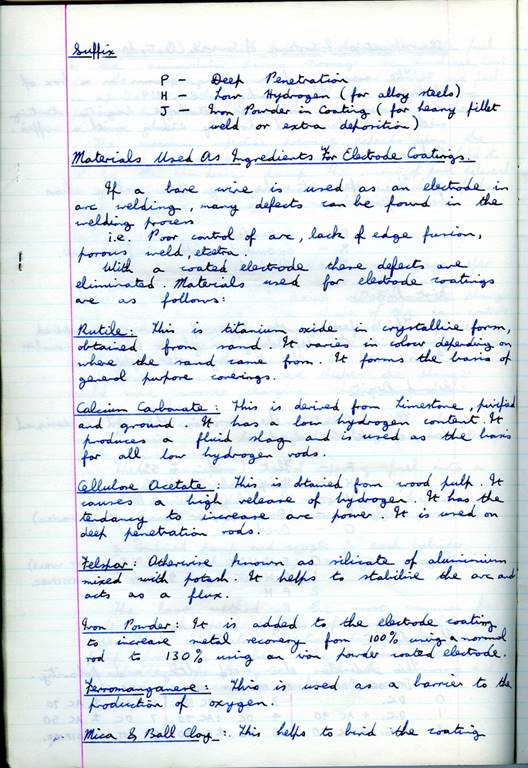 Suffix
P - Deep Penetration
H - Low Hydrogen (for alloy steels)
J - Iron Powder in Coating (for heavy fillet
weld or extra deposition)
Materials Used As Ingredients For Electrode Coatings.
If a bare wire is used as an electrode in
arc welding, many defects can be found in the
welding process
i.e. Poor control of arc, lack of edge fusion,
porous weld, etcetra.
With a coated electrode these defects are
eliminated. Materials used for electrode coatings
are as follows:
Rutile: This is titanium oxide in crystalline form,
obtained from sand. It varies in colour depending on
where the sand came from. It forms the basis of
general purpose coverings.
Calcium Carbonate: This is derived from limestone, purified
and ground. It has a low hydrogen content. It
produces a fluid slag and is used as the basis
for all low hydrogen rods.
Cellulose Acetate: This is obtained from wood pulp. It
causes a high release of hydrogen. It has the
tendancy to increase arc power. It is used on
deep penetration rods.
Felspar: Otherwise known as silicate of aluminium
mixed with potash. It helps to stabilise the arc and
acts as a flux.
Iron Powder: It is added to the electrode coating
to increase metal recovery from 100% using a normal
rod to 130% using an iron powder coated electrode.
Ferromanganese: This is used as a barrier to the
production of oxygen.
Mica & Ball Clay: This helps to bind the coating